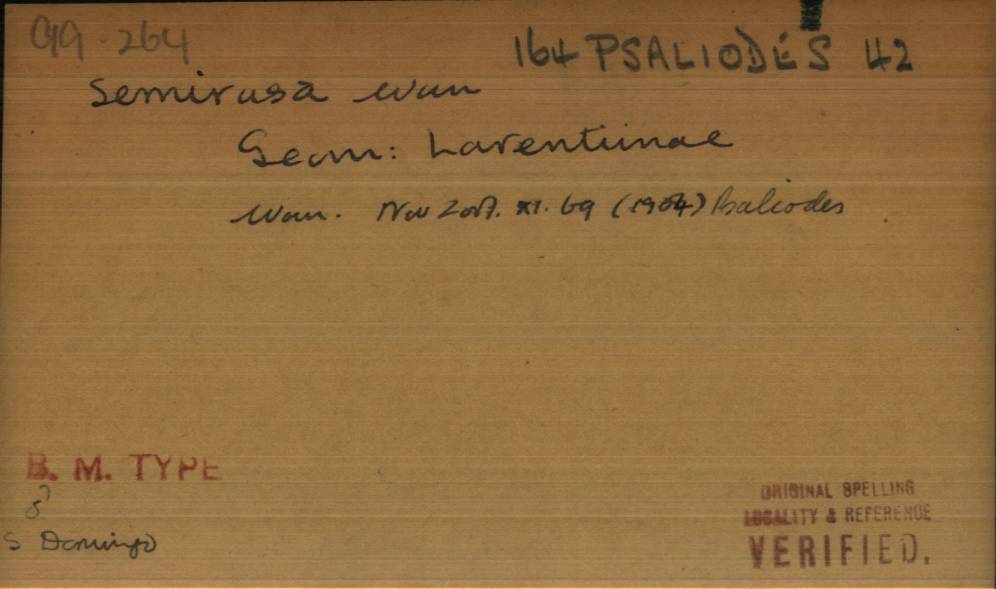 G9-264
164 PSALIODES 42
Semirasa Warr
Geom: Larentiinae
Warr. Nov Zool. XI. 69 (1904) Psaliodes
B. M. TYPE
♂
S Domingo
ORIGINAL SPELLING
LOCALITY & REFERENCE
VERIFIED.